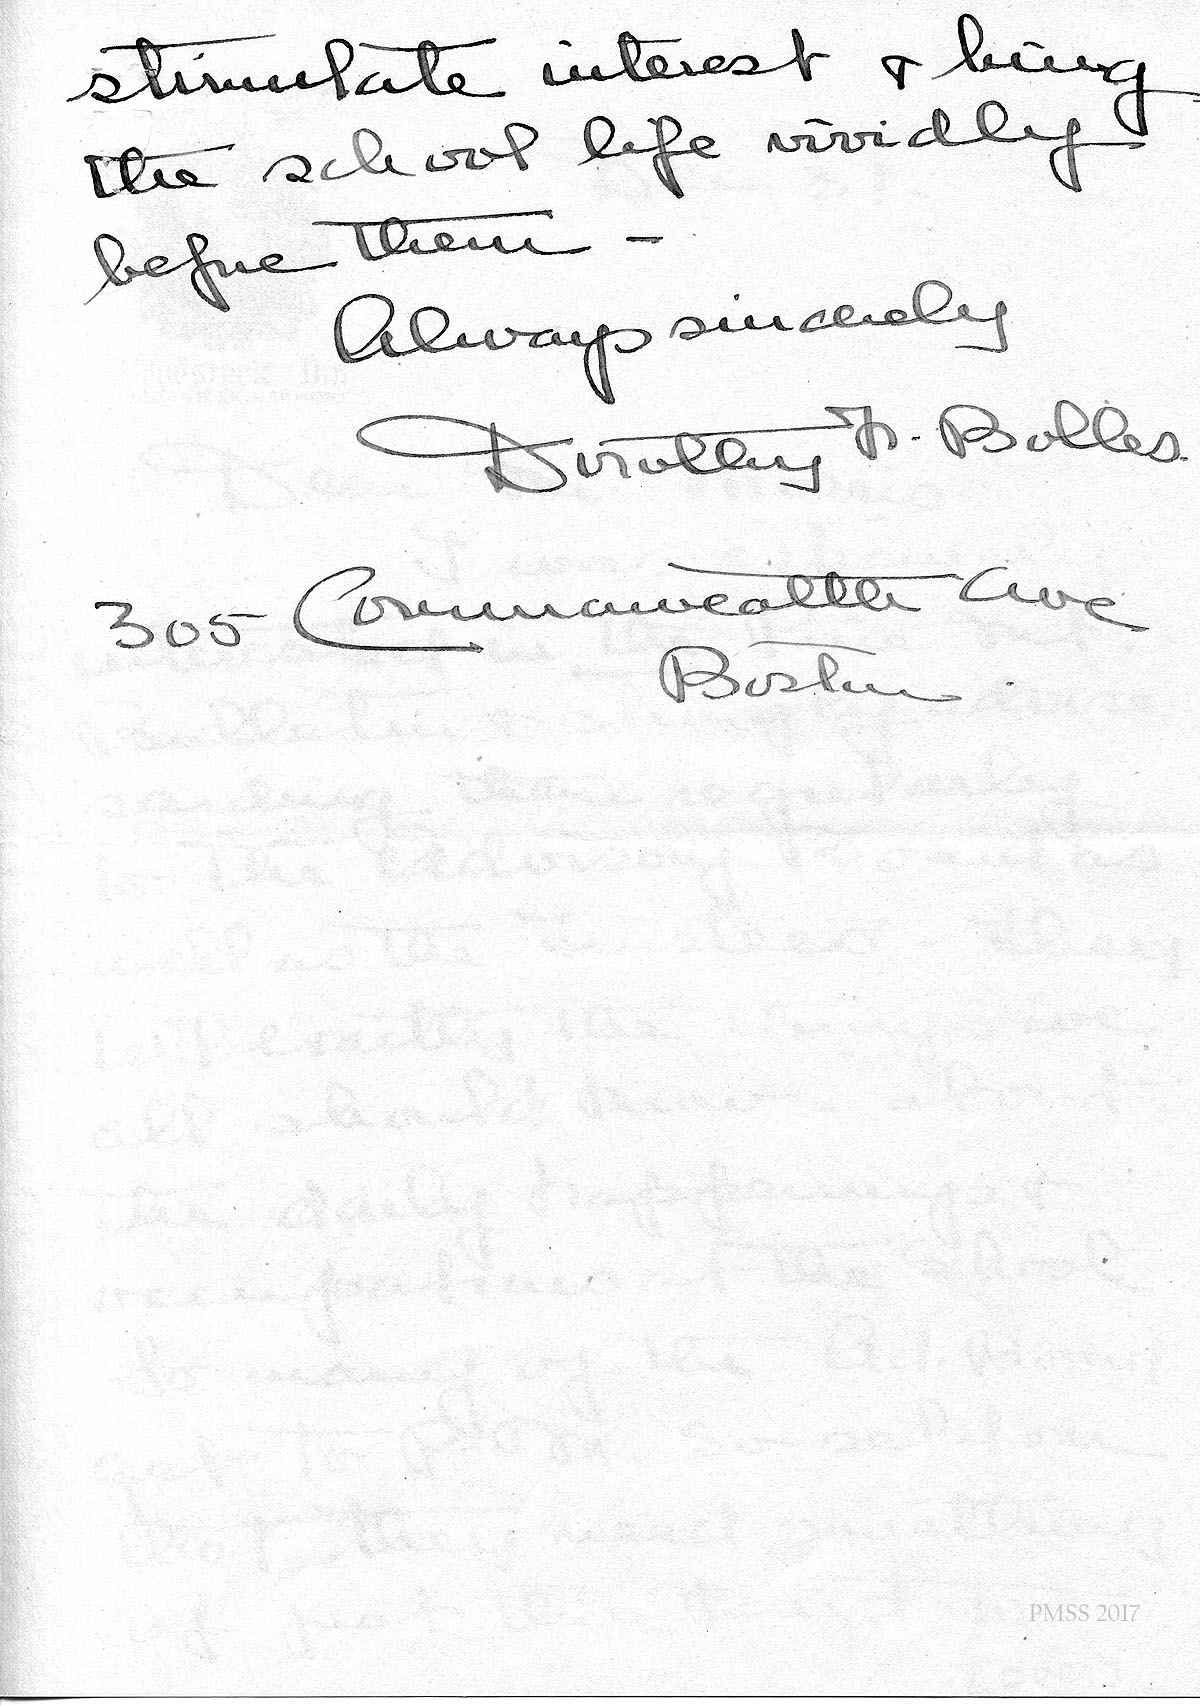 stimulate interest & bring
the school life vividly
before them –
Always sincerely
Dorothy F. Bolles.
305 Commonwealth Ave
Boston.
PMSS 2017